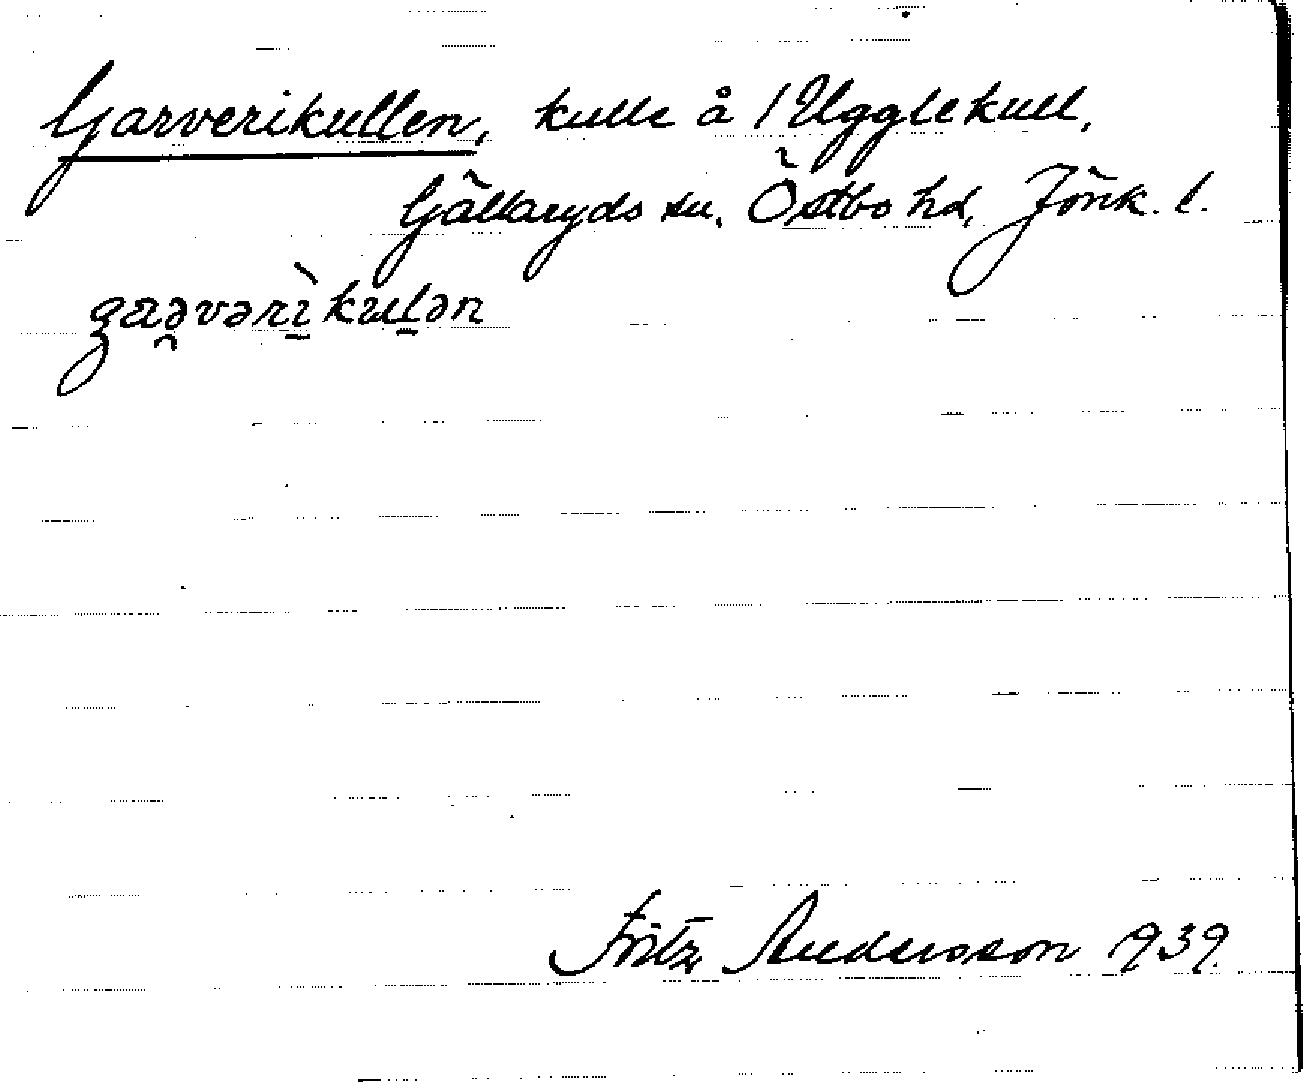 Garverikullen, kulle å /Ugglekull,
Gällaryds sn. Östbo hd, Jönk. l.
gaəvərìkulən
Fritz Andersson 1939.